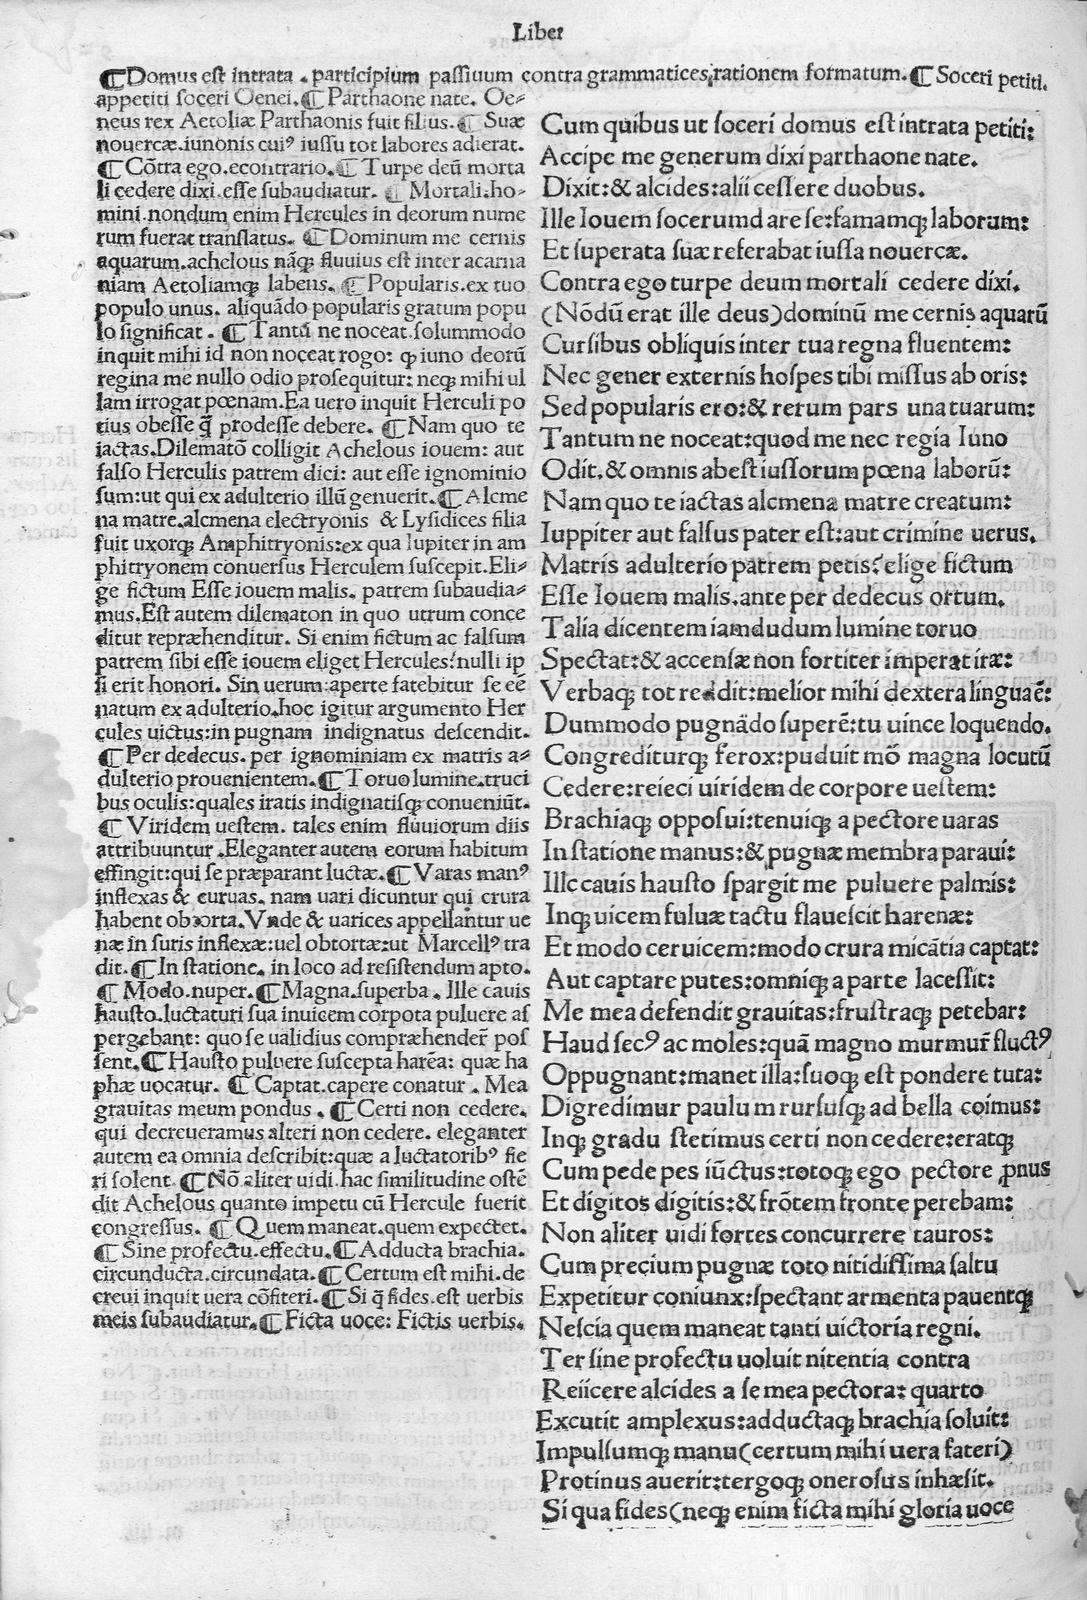 Liber
¶Domus est intrata . participium passiuum contra grammatices rationem formatum.¶Soceri petiti.
appetiti soceri Oenei.¶Parthaone nate. Oe-
neus rex Aetoliæ Parthaonis fuit filius.¶Suæ
nouercæ.iunonis cuiꝰ iussu tot labores adierat.
¶Cõtra ego.econtrario.¶Turpe deũ morta
li cedere dixi.esse subaudiatur. ¶Mortali.ho-
mini.nondum enim Hercules in deorum nume
rum fuerat translatus. ¶Dominum me cernis
aquarum.achelous nãqꝫ fluuius est inter acarna
niam Aetoliamqꝫ labens.¶Popularis.ex tuo
populo unus. aliquãdo popularis gratum popu
lo significat. ¶Tantũ ne noceat.solummodo
inquit mihi id non noceat rogo: ꝙ iuno deorũ
regina me nullo odio prosequitur: neqꝫ mihi ul
lam irrogat pœnam.Ea uero inquit Herculi po
tius obesse q̃ prodesse debere. ¶Nam quo te
iactas.Dilematõ colligit Achelous iouem: aut
falso Herculis patrem dici: aut esse ignominio
sum:ut qui ex adulterio illũ genuerit.¶Alcme
na matre.alcmena electryonis & Lysidices filia
fuit uxorqꝫ Amphitryonis:ex qua Iupiter in am
phitryonem conuersus Herculem suscepit.Eli-
ge fictum Esse iouem malis. patrem subaudia-
mus.Est autem dilematon in quo utrum conce
ditur repræhenditur. Si enim fictum ac falsum
patrem sibi esse iouem eliget Hercules:nulli ip
si erit honori. Sin uerum:aperte fatebitur se eẽ
natum ex adulterio.hoc igitur argumento Her
cules uictus:in pugnam indignatus descendit.
¶Per dedecus. per ignominiam ex matris a-
dulterio prouenientem.¶Toruo lumine.truci
bus oculis:quales iratis indignatisqꝫ conueniũt.
¶Viridem uestem. tales enim fluuiorum diis
attribuuntur .Eleganter autem eorum habitum
effingit:qui se præparant luctæ.¶Varas manꝰ
inflexas & curuas. nam uari dicuntur qui crura
habent obtorta.Vnde & uarices appellantur ue
næ in suris inflexæ:uel obtortæ:ut Marcellꝰ tra
dit.¶In statione. in loco ad resistendum apto.
¶Modo.nuper.¶Magna.superba . Ille cauis
hausto.luctaturi sua inuicem corpota puluere as
pergebant: quo se ualidius compræhender̃ pos
sent.¶Hausto puluere suscepta harẽa: quæ ha
phæ uocatur. ¶Captat.capere conatur . Mea
grauitas meum pondus .¶Certi non cedere.
qui decreueramus alteri non cedere. eleganter
autem ea omnia describit:quæ a luctatoribꝰ fie
ri solent.¶Nõ aliter uidi.hac similitudine ostẽ
dit Achelous quanto impetu cũ Hercule fuerit
congressus. ¶Quem maneat.quem expectet.
¶Sine profectu.effectu.¶Adducta brachia.
circunducta.circundata.¶Certum est mihi.de
creui inquit uera cõfiteri.¶Si q̃ fides.est uerbis
meis subaudiatur.¶Ficta uoce: Fictis uerbis.
Cum quibus ut soceri domus est intrata petiti:
Accipe me generum dixi parthaone nate.
Dixit:& alcides:alii cessere duobus.
Ille Iouem socerumd are se:famamqꝫ laborum:
Et superata suæ referabat iussa nouercæ.
Contra ego turpe deum mortali cedere dixi.
(Nõdũ erat ille deus)dominũ me cernis aquarũ
Cursibus obliquis inter tua regna fluentem:
Nec gener externis hospes tibi missus ab oris:
Sed popularis ero:& rerum pars una tuarum:
Tantum ne noceat:quod me nec regia Iuno
Odit.& omnis abest iussorum pœna laborũ:
Nam quo te iactas alcmena matre creatum:
Iuppiter aut falsus pater est:aut crimine uerus.
Matris adulterio patrem petis:elige fictum
Esse Iouem malis.ante per dedecus ortum.
Talia dicentem iamdudum lumine toruo
Spectat:& accensæ non fortiter imperat iræ:
Verbaqꝫ tot reddit:melior mihi dextera lingua ẽ:
Dummodo pugnãdo superẽ:tu uince loquendo.
Congrediturqꝫ ferox:puduit mõ magna locutũ
Cedere:reieci uiridem de corpore uestem:
Brachiaqꝫ opposui:tenuiqꝫ a pectore uaras
In statione manus:& pugnæ membra paraui:
Ille cauis hausto spargit me puluere palmis:
Inqꝫ uicem fuluæ tactu flauescit harenæ:
Et modo ceruicem:modo crura micãtia captat:
Aut captare putes:omniqꝫ a parte lacessit:
Me mea defendit grauitas:frustraqꝫ petebar:
Haud secꝰ ac moles:quã magno murmur̃ fluctꝰ
Oppugnant:manet illa:suoqꝫ est pondere tuta:
Digredimur paulum rursusqꝫ ad bella coimus:
Inqꝫ gradu stetimus certi non cedere:eratqꝫ
Cum pede pes iũctus:totoqꝫ ego pectore ꝓnus
Et digitos digitis:& frõtem fronte perebam:
Non aliter uidi fortes concurrere tauros:
Cum precium pugnæ toto nitidissima saltu
Expetitur coniunx:spectant armenta pauentqꝫ
Nescia quem maneat tanti uictoria regni.
Ter sine profectu uoluit nitentia contra
Reiicere alcides a se mea pectora: quarto
Excutit amplexus:adductaqꝫ brachia soluit:
Impulsumqꝫ manu(certum mihi uera fateri)
Protinus auerit:tergoqꝫ onerosus inhæsit.
Si qua fides(neqꝫ enim ficta mihi gloria uoce